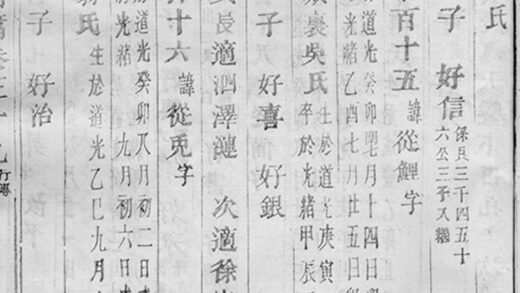 氏
子 好信 保良三千四五十
六公三子入繼
百十五 諱從鯉字
道光癸卯 七月十四日
光緒乙酉七月廿五日
吳氏 生於道光庚寅
卒於光緒甲辰
子 好喜 好銀
長適泗澤漣 次適徐
十六 諱從兎字
道光癸卯八月初二日
光緒 九月初六日
氏 生於道光乙巳九月
子 好治
卷三十 行傳